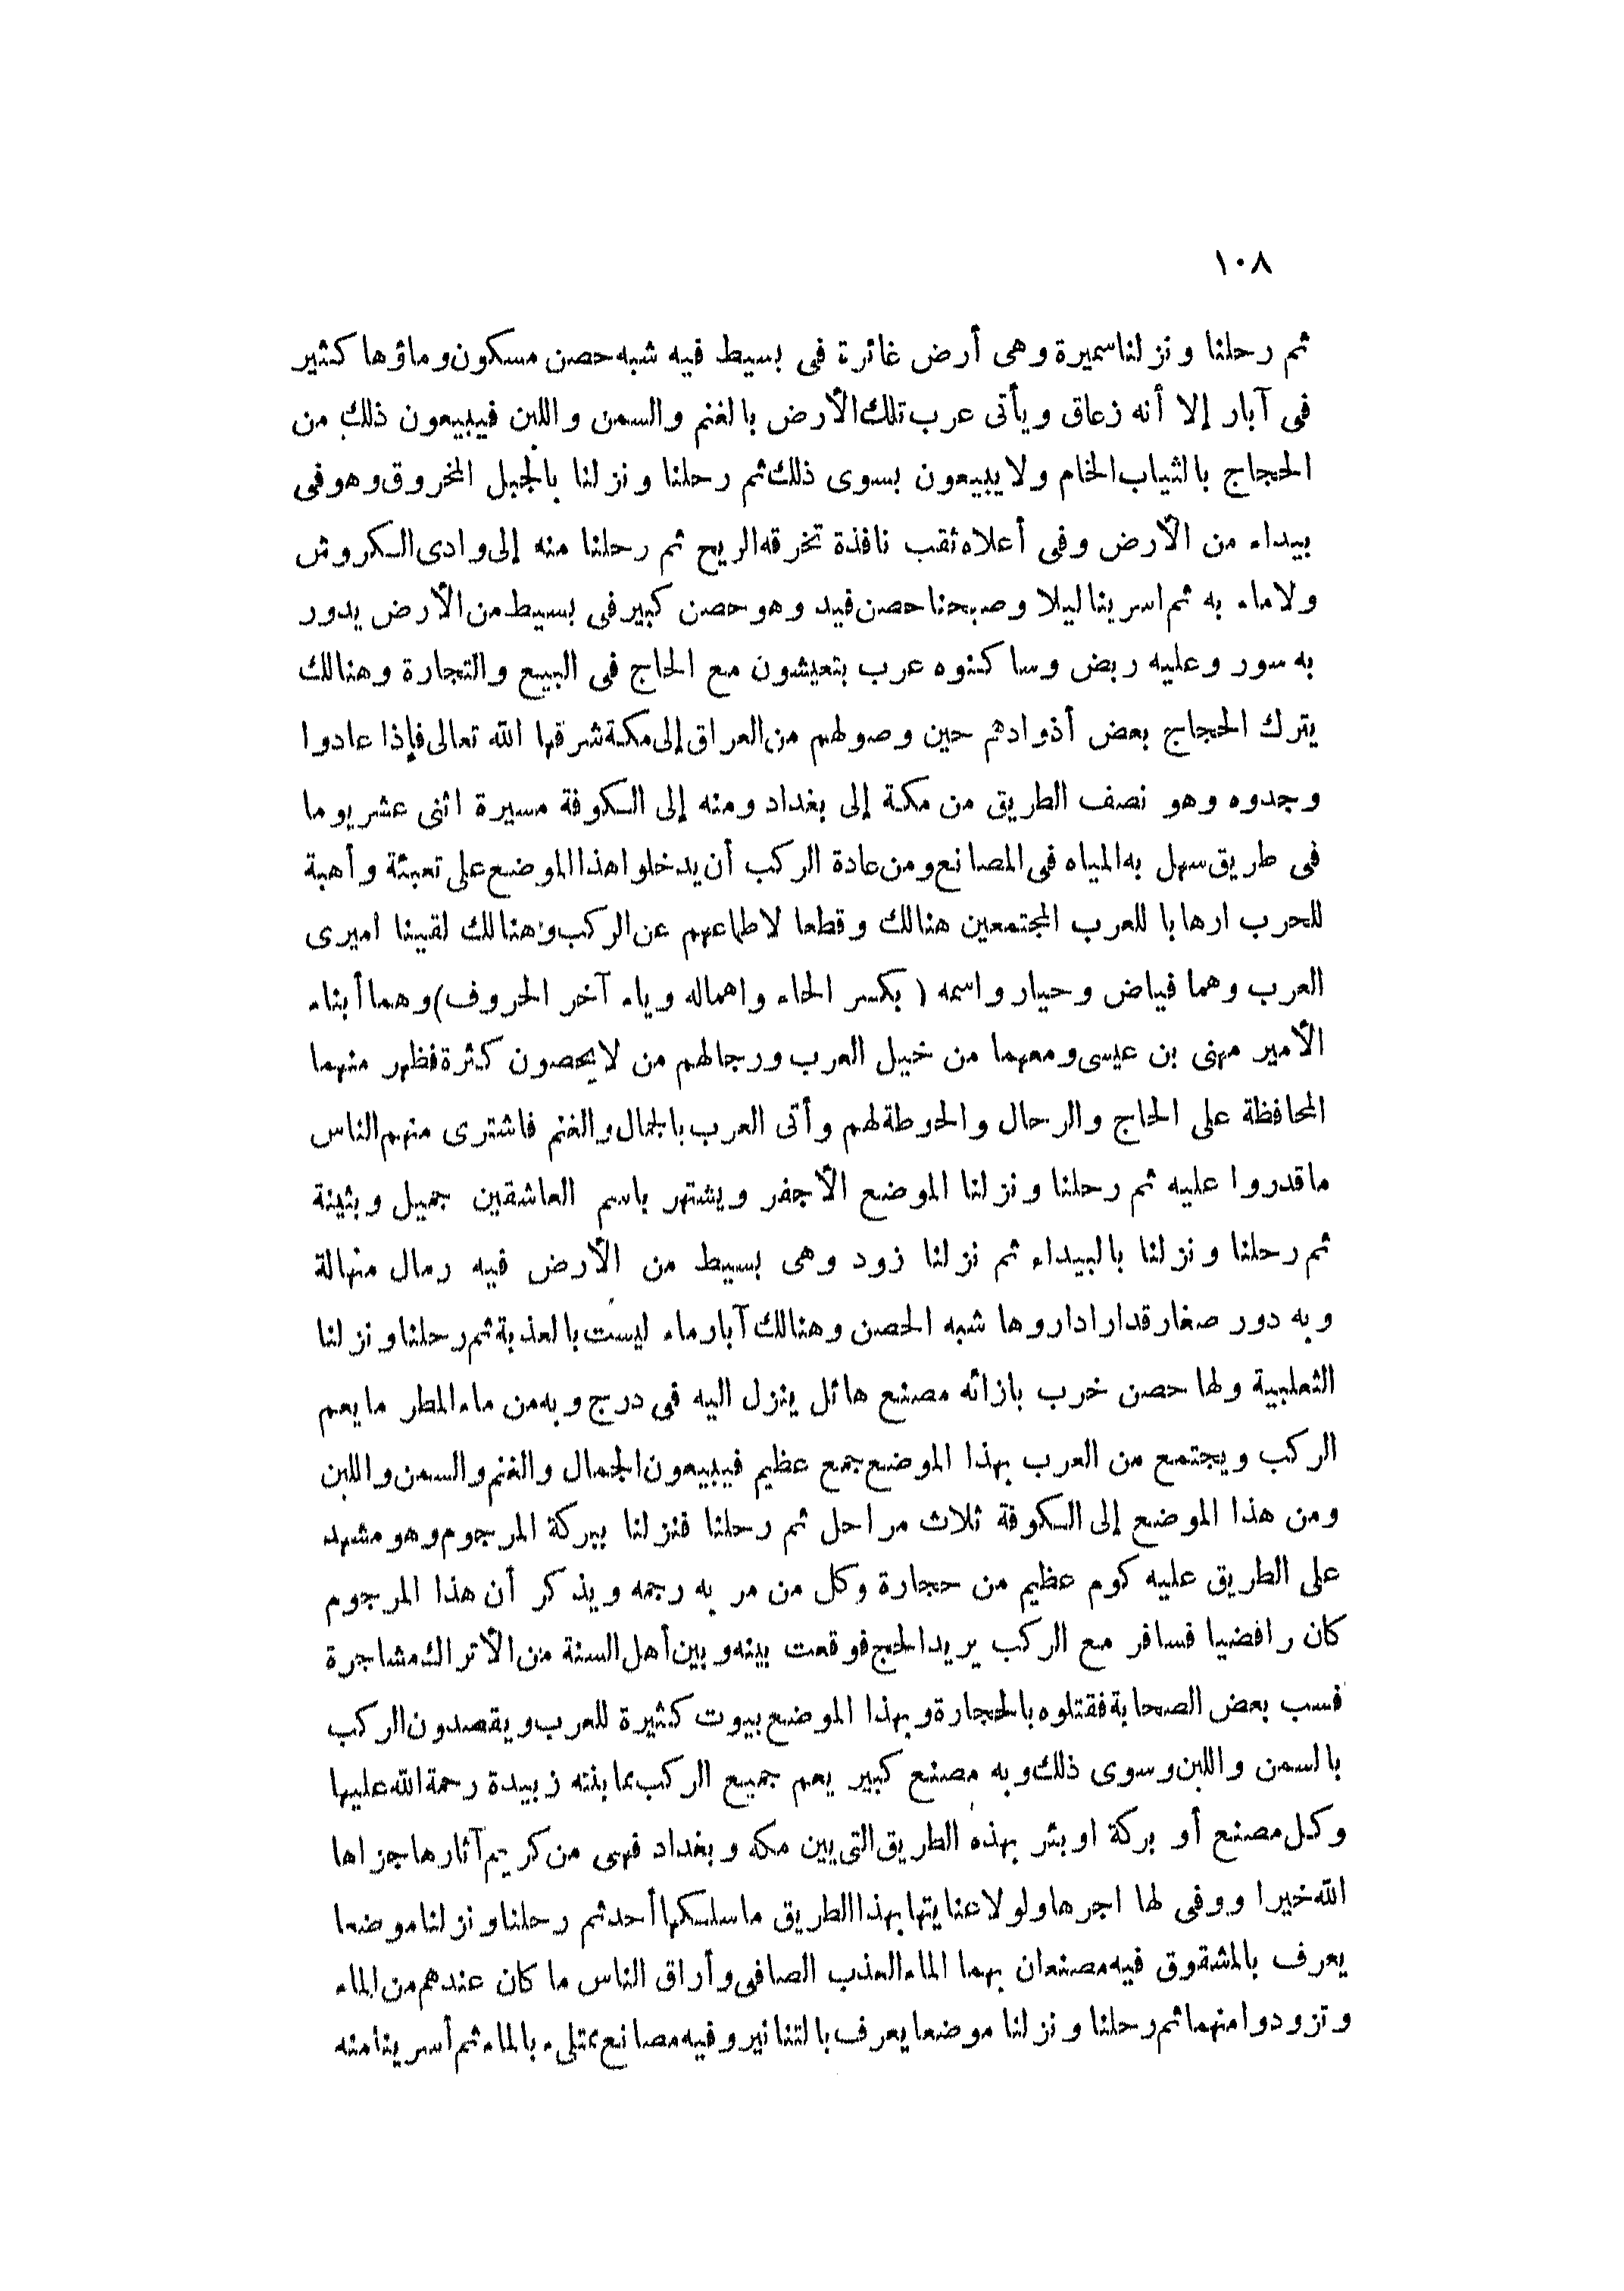 ١٠٨
ثم رحلنا ونزلنا سميرة وهى أرض غائرة فى بسيط فيه شبه حصن مسكون وماؤها كثير
فى آبار إلا أنه زعاق ويأتى عرب تلك الأرض بالغنم والسمن واللبن فيبيعون ذلك من
الحجاج بالثياب الخام ولا يبيعون بسوى ذلك ثم رحلنا ونزلنا بالجبل المخروق وهو فى
بيداء من الأرض وفى أعلاه ثقب نافذة تخرقه الريح ثم رحلنا منه إلى وادى الكروش
ولا ماء به ثم اسرينا ليلا وصبحنا حصن فيد وهو حصن كبير فى بسيط من الأرض يدور
به سور وعليه ربض وساكنوه عرب بتعيشون مع الحاج فى البيع والتجارة وهنالك
يترك الحجاج بعض أذوادهم حين وصولهم من العراق إلى مكة شرفها الله تعالى فإذا عادوا
وجدوه وهو نصف الطريق من مكة إلى بغداد ومنه إلى الكوفة مسيرة اثنى عشر يوما
فى طريق سهل به المياه فى المصانع ومن عادة الركب أن يدخلوا هذا الموضع على تعبئة وأهبة
للحرب ارهابا للعرب المجتمعين هنالك وقطعا لاطماعهم عن الركب وهنالك لقينا اميرى
العرب وهما فياض وحيار واسمه ( بكسر الحاء واهماله وياء آخر الحروف) وهما أبناء
الأمير مهنى بن عيسى ومعهما من خيل العرب ورجالهم من لا يحصون كثرة فظهر منهما
المحافظة على الحاج والرحال والحوطة لهم وأتى العرب بالجمال والغنم فاشترى منهم الناس
ما قدروا عليه ثم رحلنا ونزلنا الموضع الأجفر ويشتهر باسم العاشقين جميل وبثينة
ثم رحلنا ونزلنا بالبيداء ثم نزلنا زود وهى بسيط من الأرض فيه رمال منهالة
وبه دور صغار قدار اداروها شبه الحصن وهنالك آبار ماء ليست بالعذبة ثم رحلنا ونزلنا
الثعلبية ولها حصن خرب بازائه مصنع هائل ينزل اليه فى درج وبه من ماء المطر ما يعم
الركب ويجتمع من العرب بهذا الموضع جمع عظيم فيبيعون الجمال والغنم والسمن واللبن
ومن هذا الموضع إلى الكوفة ثلاث مراحل ثم رحلنا فنزلنا ببركة المرجوم وهو مشهد
على الطريق عليه كوم عظيم من حجارة وكل من مر به رجمه ويذكر أن هذا المرجوم
كان رافضيا فسافر مع الركب يريد الحج فوقعت بينه وبين أهل السنة من الأتراك مشاجرة
فسب بعض الصحابة فقتلوه بالحجارة وبهذا الموضع بيوت كثيرة للعرب ويقصدون الركب
بالسمن واللبن وسوى ذلك وبه مصنع كبير يعم جميع الركب مما بنته زبيدة رحمة الله عليها
وكل مصنع أو بركة او بئر بهذه الطريق التى بين مكه وبغداد فهى من كريم آثارها جزاها
الله خيرا ووفى لها اجرها ولولا عنايتها بهذا الطريق ما سلكها أحد ثم رحلنا ونزلنا موضعا
يعرف بالمشقوق فيه مصنعان بهما الماء العذب الصافى وأراق الناس ما كان عندهم من الماء
وتزودوا منهما ثم رحلنا ونزلنا موضعا يعرف بالتنانير وفيه مصانع ممتلىء بالماء ثم أسرينا منه